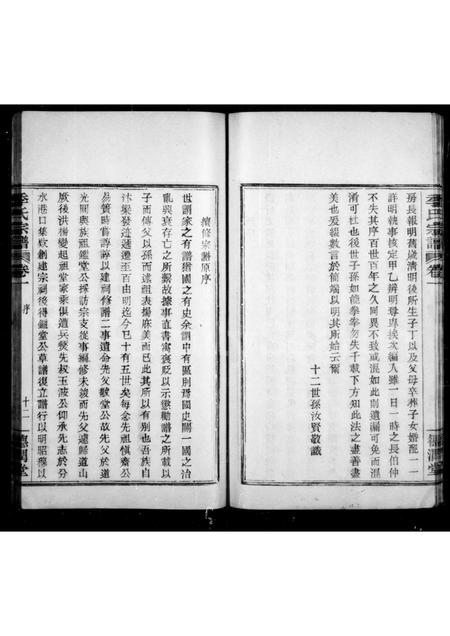 房長報明舊歲清明後所生子丁以及父母卒葬子女婚配一一
詳明執事核定甲乙辨明尊卑挨次編入雖一日一時之長伯仲
不失其序百世百年之久同異不致或混如此則遺漏可免而混
淆可杜也後世子孫如能拳拳勿失千載下方知此法之盡善盡
美也爰綴數言於簡端以明其所始云爾
十二世孫汝賢敬識
季氏宗譜
卷一
德潤堂
續修宗譜原序
世謂家之有譜猶國之有史余謂中有區別焉國史關一國之治
亂興衰存亡之所繫故據事直書寓褒貶以示懲勸譜之所載以
子而傳父以孫而述祖表揚庥美而已此其所以有別也吾族自
汴梁發迹遞遷至百由明迄今已十有五世矣每念先祖愼齋公
易簀時嘗諄諄以建祠修譜二事遺命先父歡堂公故先父於道
光間與族祖鑑堂公採訪宗支從事編修未竣而先父遽歸道山
厥後洪楊變起祖堂家乘俱遭兵燹先叔玉波公仰承先志於分
水港口集歀創建宗祠後得鑑堂公草譜復立譜行以明昭穆以
季氏宗譜
卷一
序
十二
德潤堂